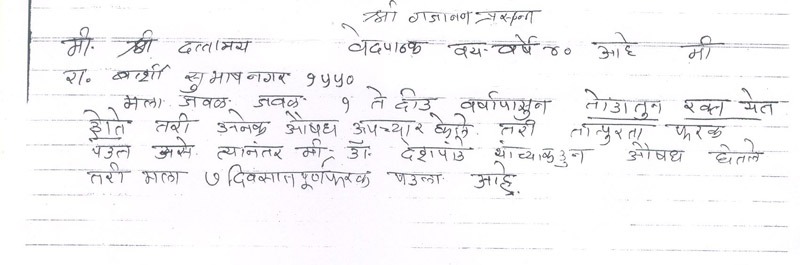 श्री गजानन प्रसन्न
मी. श्री दत्तात्रय वेदपाठक वय वर्षे ४० आहे मी
रा. बार्शी सुभाषनगर १५५०
मला जवळ जवळ १ ते दीड वर्षापासुन तोंडातुन रक्त येत
होते तरी अनेक औषध उपच्यार केले. तरी तात्पुरता फरक
पडत असे. त्यानंतर मी. डॉ. देशपांडे यांच्याकडुन औषध घेतले
तरी मला ७ दिवसात पूर्ण फरक पडला आहे.